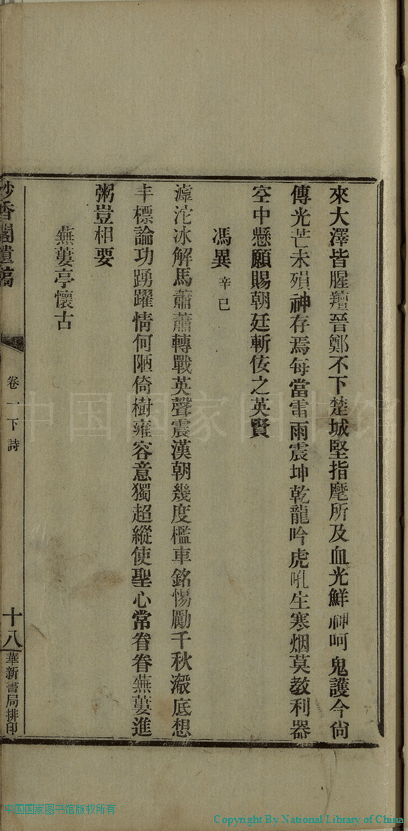 來大澤皆腥羶晉鄭不下楚城堅指麾所及血光鮮神呵鬼護今尙
傳光芒未殞神存焉每當雷雨震坤乾龍吟虎吼生寒烟莫敎利器
空中懸願賜朝廷斬佞之英賢
馮異辛巳
滹沱冰解馬蕭蕭轉戰英聲震漢朝幾度檻車銘惕勵千秋潑底想
丰標論功踴躍情何陋倚樹雍容意獨超縱使聖心常眷眷蕪蔞進
粥豈相要
蕪蔞亭懷古
妙香閣遺稿
卷一下詩
十八
華新書局排印
中国国家图书馆版权所有
Copyright By National Library of China